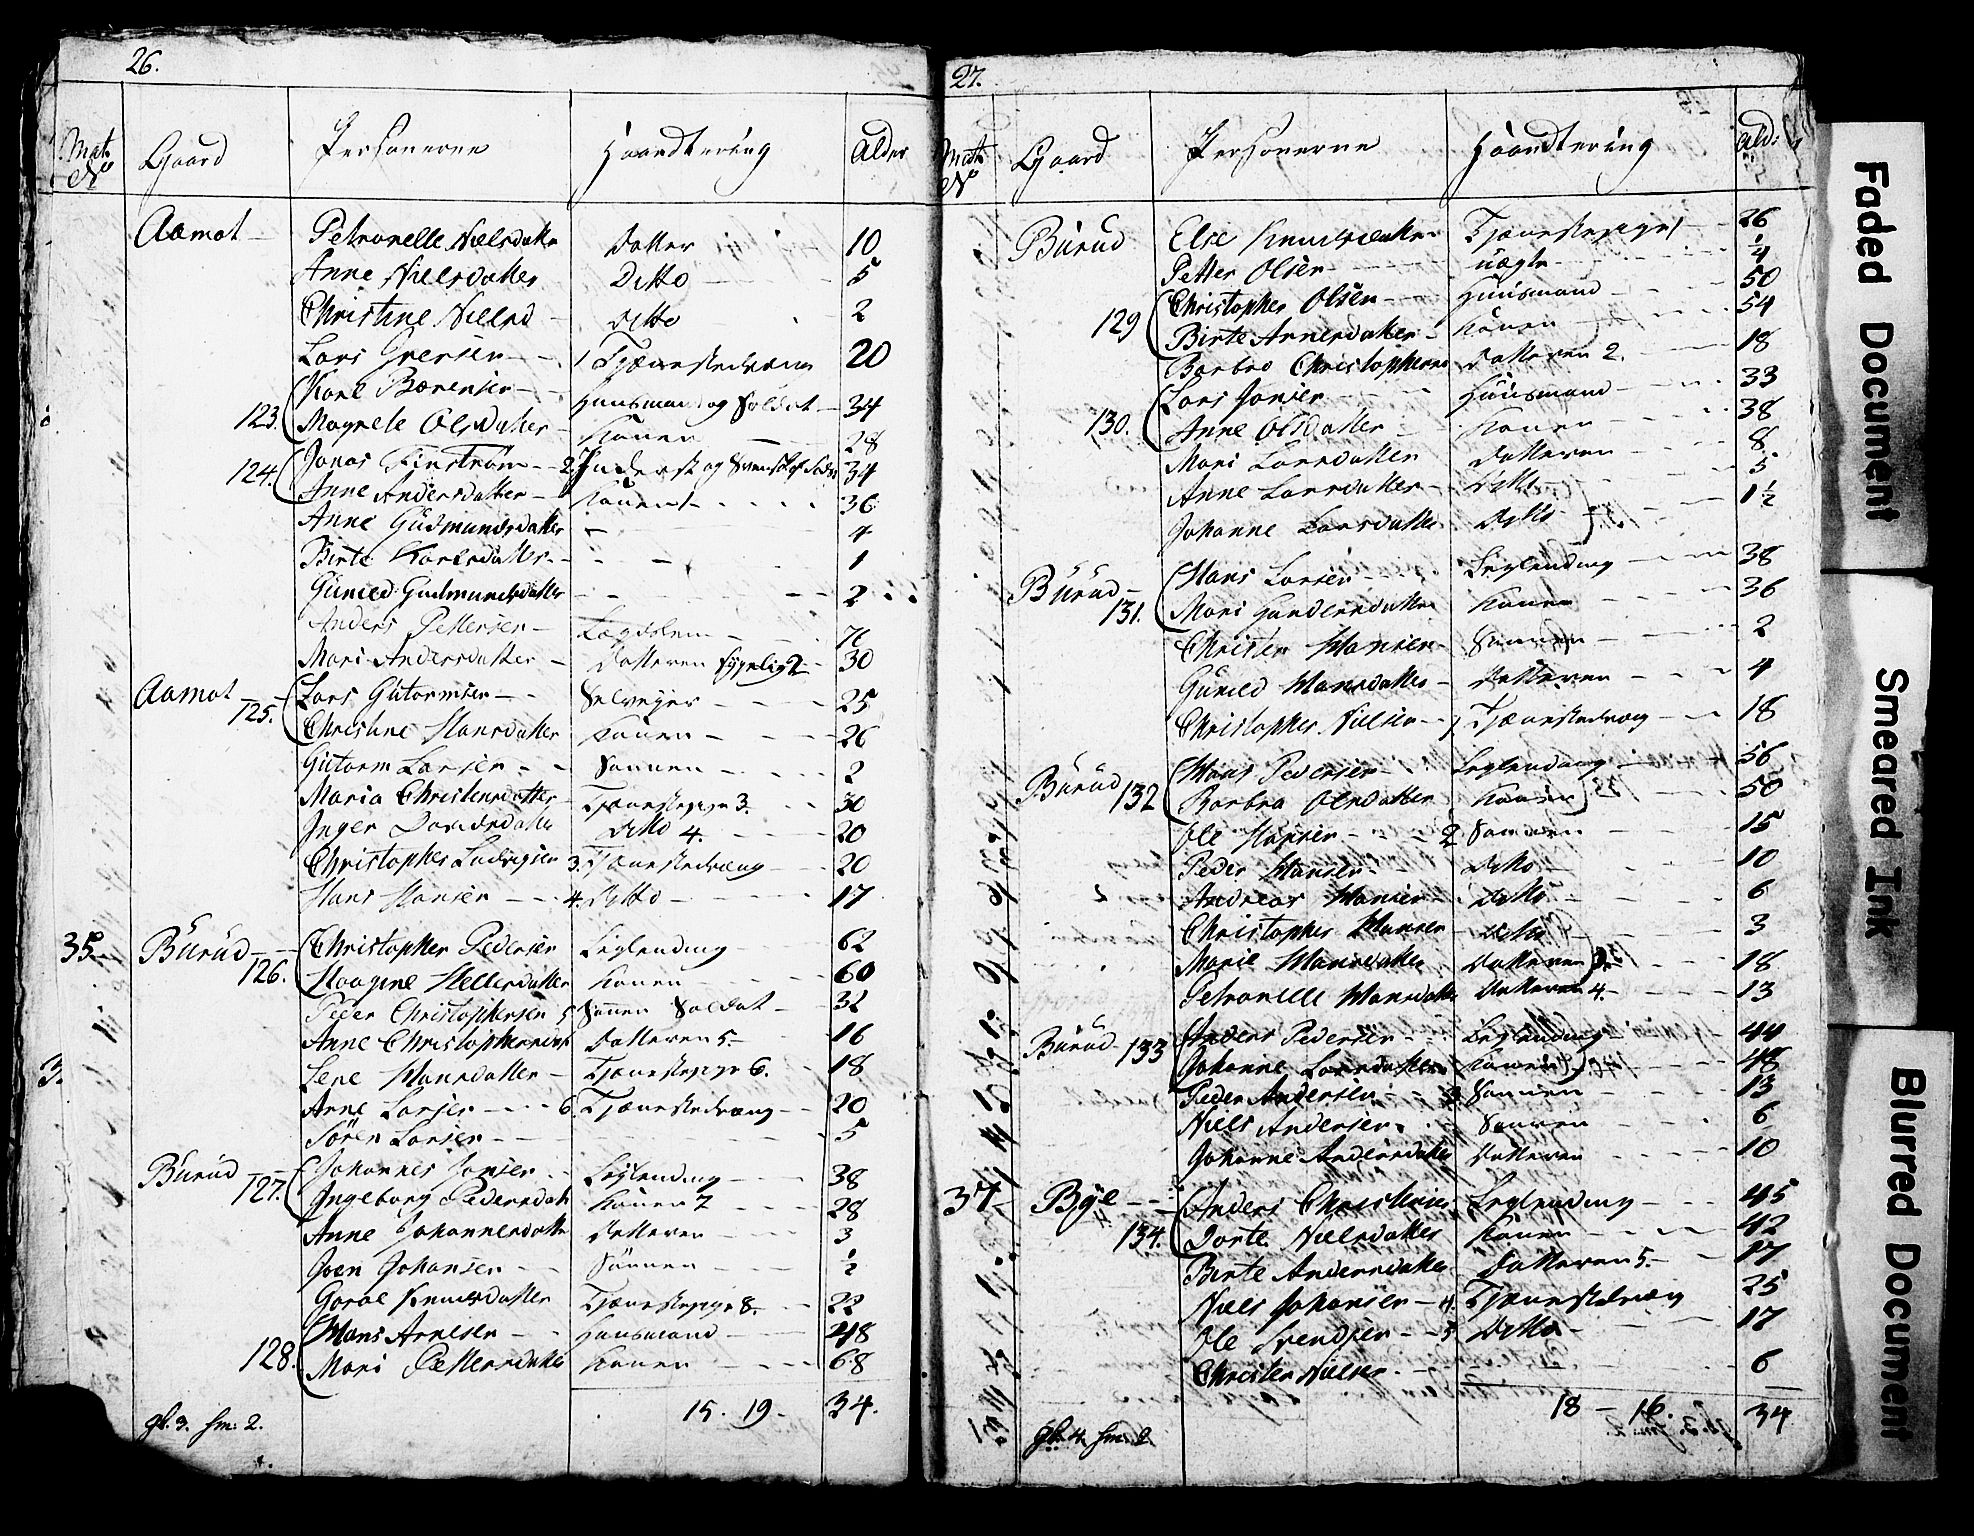 26.
Mat. No Gaard Personerne Haandtering Alder
Aamot Petronelle Nielsdatter Datter 10
Anne Nielsdatter Ditto 5
Christine Nielsd Ditto 2
Lars 1 Tjænestedreng 20
123. Karl Huusmand og Soldat 34
Magnete Olsdatter Konen 28
124. Jonas 2 34
Anne Andersdatter Konen 1 36
Anne Gudmundsdatter 4
Birte Karlsdatter 1
Guneld Gudmundsdatter 2
Anders Pettersen Lægdslem
Mari Andersdatter Datteren 2 30
Aamot 125. Lars Gutormsen Selvejer 25
Christine Hansdatter Konen 26
Gutorm Larsen Sønnen 2
Maria Christensdatter Tjænestepige 3. 30
Inger Ditto 4. 20
Christopher Ludvigsen 3. Tjænestedreng 20
Hans Hansen 4. Ditto 17
35 Burud 126. Christopher Pedersen Leylending 62
Konen 60
Peder Christophersen 5 Sønen Soldat 32
Anne Datteren 5. 16
3. Lene Hansdatter Tjænestepige 6. 18
Arne Larsen 6 Tjænestedreng 20
Sören Larsen 5
Burud 127. Johannes Jonsen Leylending 38
Ingeborg Pedersdat Konen 7 28
Anne Datteren 3
Joen Johansen Sönnen ½
Knudsdatter Tjænestepige 8. 22
128. Hans Arnesen Huusmand 48
Mari Pettersdatter Konen 68
15. 19. 34.
gb. 3. hm: 2.
27.
Mat. No Gaard Personerne Haandtering Ald:
Burud Else Knudsdatter Tjænestepige 1 26
Petter Olsen uægte ¼
129 Christopher Olsen Huusmand 50
Birte Arnesdatter Konen 54
Barbro Datteren 2. 18
130. Lars Jonsen Huusmand 33
Anne Olsdatter Konen 38
Mari Larsdatter Datteren 8
Anne Larsdatter Ditto 5
Johanne Larsdatter Ditto 1½
Burud 131. Hans Larsen Leylending 38
Mari Konen 36
Christen Hansen Sønnen 2
Guneld Hansdatter Datteren 4
Christopher Nielsen 1 Tjænestedreng 18
Burud 132 Hans Pedersen Leylending 56
Barbra Olsdatter Konen 50
Ole Hansen 2 Sønnen 15
Peder Hansen Ditto 10
Andreas Hansen Ditto 6
Christopher Hansen Ditto 3
Marie Hansdatter Datteren 3. 18
Petronelle Hansdatter Datteren 4. 13
Burud 133 Anders Pedersen Leylending 44
Johanne Larsdatter Konen 48
Peder Andersen 3 Sønnen 13
Niels Andersen Sønnen 6
Johanne Andersdatter Datteren 10
37 Bye 134. Anders Leylending 45
Dorte Nielsdatter Konen 42
Birte Andersdatter Datteren 5. 17
Niels Johansen 4. Tjænestedreng 25
Ole Svendsen 5 Ditto 17
Christen Nielsen 6
18 - 16. 34
gb. 4. hm. 2
Faded Document
Smeared Ink
Blurred Document